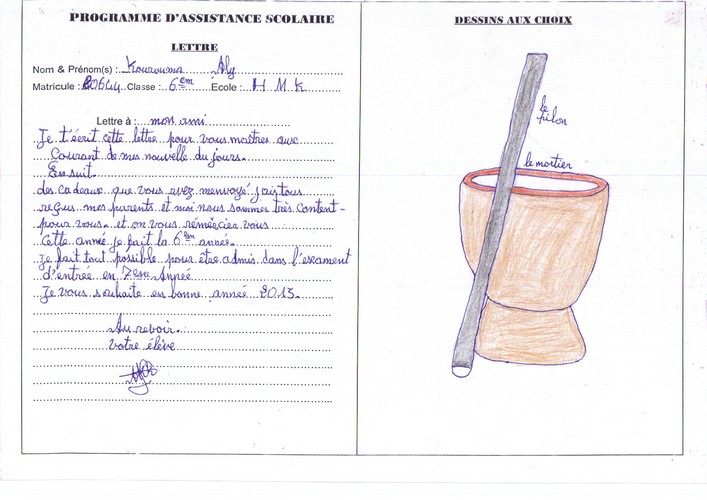 PROGRAMME D'ASSISTANCE SCOLAIRE
LETTRE
Nom & Prénom(s) : Kourouma Aly
Matricule : Classe : 6em Ecole : H M K
Lettre à : mon ami
Je t'écrit cette lettre pour vous maitres auc
Courant de mes nouvelle du jours.
En suit.
des cadeaux que vous avez menvoyé j'ais tous
reçus mes parents et moi nous sommes très content-
pour vous. et on vous rémércier vous
Cette année je fait la 6em année.
Je fait tout possible pour être admis dans l'escament
d'entrée en 7em Année
Je vous souhaite en bonne année 2013.
Au revoir.
votre élève
DESSINS AUX CHOIX
le pilon
le mortier